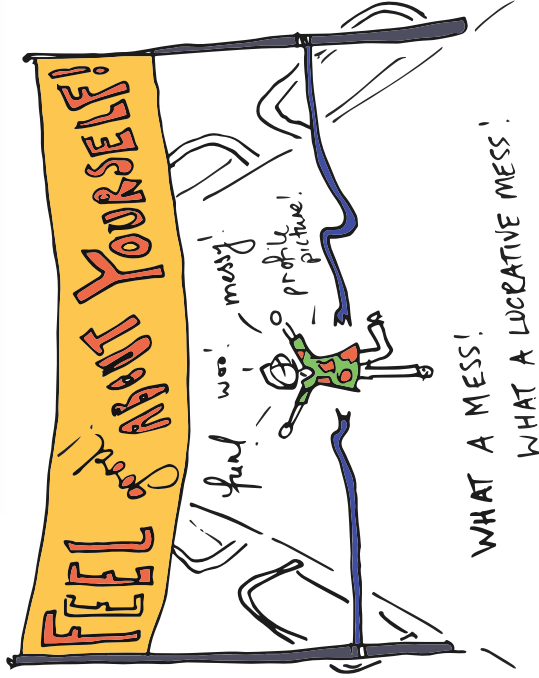 FEEL good ABOUT YOURSELF!
fun! woo! messy!
profile
picture!
WHAT A MESS!
WHAT A LUCRATIVE MESS!